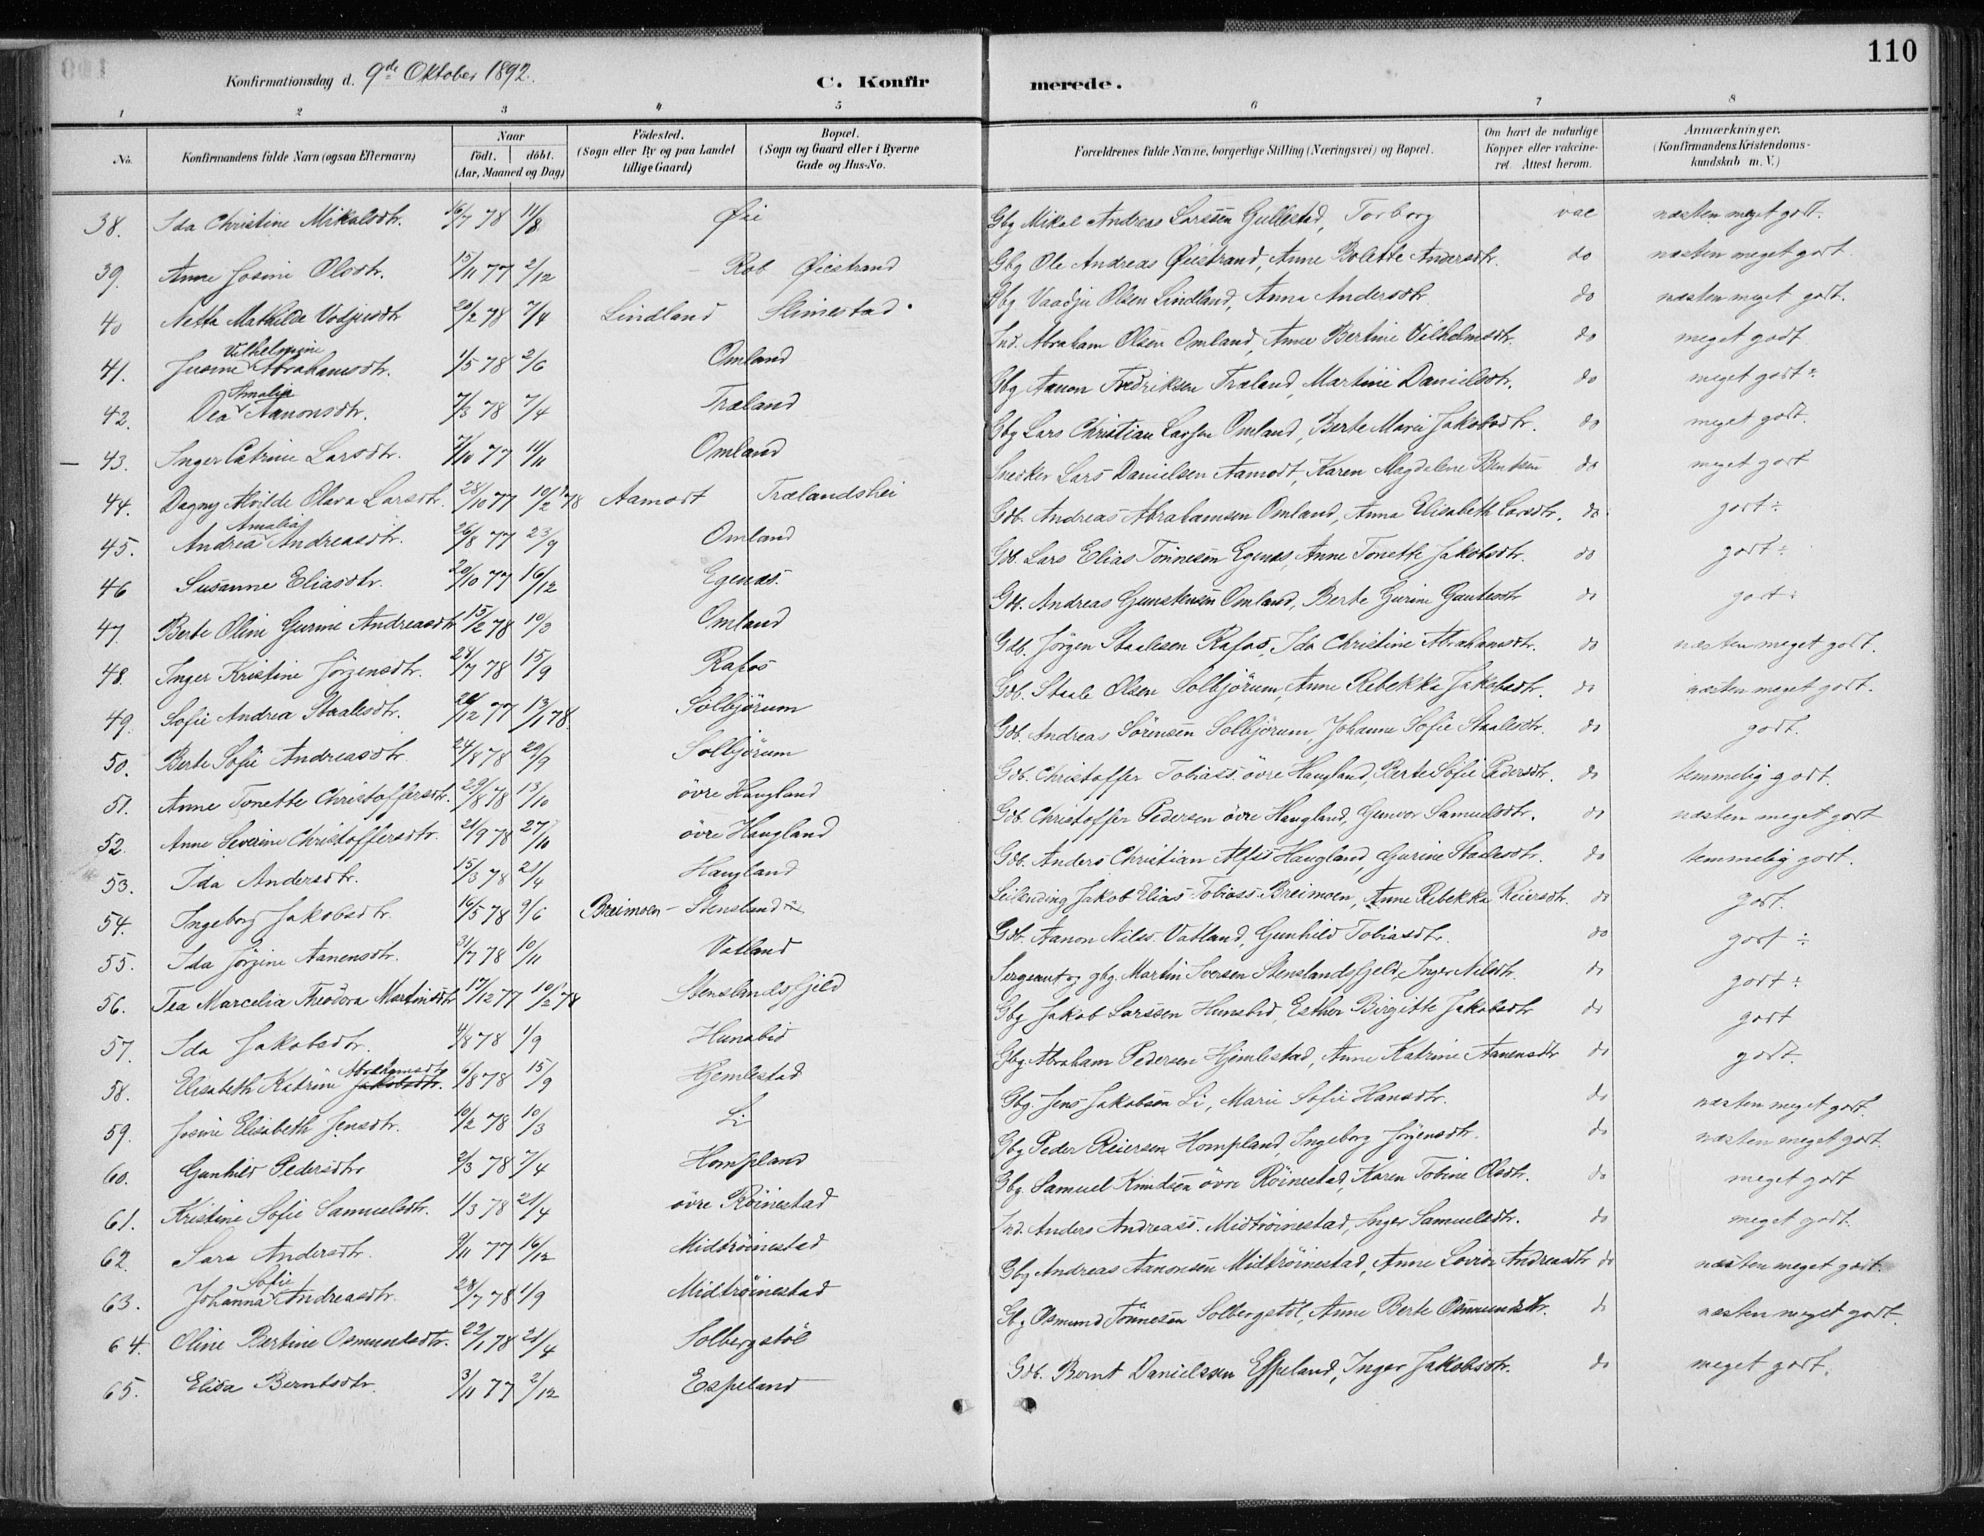 110
Konfirmationsdag d. 9de Oktober 1892.
C. Konfirmerede.
1 2 3 4 5 6 7 8
No. Konfirmandens fulde Navn (ogsaa Efternavn) Naar födt. döbt. (Aar, Maaned og Dag) Födested. (Sogn eller By og paa Landet tillige Gaard) Bopæl. (Sogn og Gaard eller i Byerne Gade og Hus-No. Forældrenes fulde Navne, borgerlige Stilling (Næringsvei) og Bopæl. Om havt de naturlige Kopper eller vakcineret. Attest herom. Anmærkninger. (Konfirmandens Kristendomskundskab m. V.)
38. Ida Christine Mikalsdtr. 16/7 78 11/8 Øie Gbg Mikal Andreas Larssen Gullestad, Torborg vac næsten meget godt.
39. Anne Josine Olsdtr. 15/11 77 2/12 Rob Øiestrand Gbg Ole Andreas Øiestrand, Anne Bolette Andersdtr. do næsten meget godt
40 Netta Mathilde Vodjusdtr 20/2 78 7/4 Lindland Slimestad Gbg Vaadju Olsen Lindland, Anna Andersdtr. do næsten meget godt.
41. Jusine Vilhelmine Abrahamsdtr. 1/5 78 2/6 Omland Ind. Abraham Olsen Omland, Anne Bertine Vilhelmsdtr. do meget godt
42. Dea Amalia Aanonsdtr. 7/3 78 7/4 Træland Gbg Aanon Fredriksen Træland, Martine Danielsdtr. do meget godt÷
43. Inger Catrine Larsdtr. 7/10 77 11/11 Omland Gbg Lars Christian Larsen Omland, Berte Marie Jakobsdtr. do meget godt.
44. Dagny Alvilde Olava Larsdtr. 28/10 77 10/2 78 Aamodt Trælandshei Snedker Lars Danielsen Aamodt, Karen Magdelene Bentsen do meget godt
45. Andrea Amalia Andreasdtr. 26/8 77 23/9 Omland Gdb. Andreas Abrahamsen Omland, Anna Elisabeth Larsdtr. do godt÷
46 Susanne Eliasdtr. 20/10 77 16/12 Egenæs. Gdb. Lars Elias Tönnesen Egenæs, Anne Tonette Jakobsdtr. do godt÷
47. Berte Oline Gurine Andreasdtr 15/2 78 10/3 Omland Gdb. Andreas Gunstensen Omland, Berte Gurine Gautesdtr do godt÷
48. Inger Kristine Jörgensdtr. 28/7 78 15/9 Rafos Gdb. Jörgen Staalesen Rafos, Ida Christine Abrahamsdtr. do næsten meget godt.
49. Sofie Andrea Staalesdtr. 26/12 77 13/1 78. Solbjörum Gdb. Staale Olsen Solbjörum, Anne Rebekka Jakobsdtr. do næsten meget godt.
50. Berte Sofie Andreasdtr. 24/8 78 29/9 Solbjörum Gdb. Andreas Sörensen Solbjörum, Johanne Sofie Staalesdtr. do godt.
51. Anne Tonette Christoffersdtr. 29/8 78 13/10 övre Haugland Gdb. Christoffer Tobiass. övre Haugland, Berte Sofie Pedersdtr. do temmelig godt.
52. Anne Severine Christoffersdtr. 21/9 78 27/10 övre Haugland Gdb. Christoffer Pedersen övre Haugland, Gunvor Samuelsdtr. do næsten meget godt
53. Ida Andersdtr. 15/3 78 22/4 Haugland Gdb. Anders Christian Alfss Haugland, Gurine Staalesdtr. do temmelig godt.
54. Ingeborg Jakobsdtr. 16/5 78 9/6 Breimoen - Stensland Leilending Jakob Elias Tobiass. Breimoen, Anne Rebekka Reiersdtr. do godt.
55. Ida Jörgine Aanensdtr. 31/7 78 10/11 Vatland Gdb. Aanon Nilss. Vatland, Gunhild Tobiasdtr. do godt÷
56. Tea Marcelia Theodora Martinsdtr 17/12 77 10/2 78 Stenslandsfjeld Sergeant og gbg. Martin Iversen Stenslandsfjeld, Inger Nilsdtr. do godt÷
57. Ida Jakobsdtr. 4/8 78 1/9 Hunsbed Gbg Jakob Larssen Hunsbed, Esther Birgitte Jakobsdtr do godt
58. Elisabeth Katrine Jakobsdtr. Abrahamsdtr 6/8 78 15/9 Hjemlestad Gbg Abraham Pedersen Hjemlestad, Anne Katrine Aanensdtr do godt.
59. Josine Elisabeth Jensdtr. 10/2 78 10/3 Li Gbg. Jens Jakobsen Li, Marie Sofie Hansdtr. do næsten meget godt.
60. Gunhild Pedersdtr 2/3 78 7/4 Hompland Gbg Peder Reiersen Hompland, Ingeborg Jörgensdtr. do næsten meget godt.
61. Kristine Sofie Samuelsdtr. 1/3 78 21/4 övre Röinestad Gbg. Samuel Knudsen övre Röinestad, Karen Tobine Olsdtr. do meget godt
62. Sara Andersdtr. 9/11 77 16/12 Midtröinestad Ind. Anders Andreass. Midtröinestad, Inger Samuelsdtr. do meget godt.
63. Johanna Sofie Andreasdtr. 28/7 78 1/9 Midtröinestad Gbg Andreas Aanonsen Midtröinestad, Anne Lovise Andreasdtr do næsten meget godt.
64. Oline Bertine Osmundsdtr. 22/1 78 21/4 Solbergstöl Gbg Osmund Tönnesen Solbergstöl, Anne Berte Osmundsdtr. do næsten meget godt.
65. Elida Berntsdtr. 3/11 77 2/12 Espeland Gdb. Bernt Danielssen Espeland, Inger Jakobsdtr. do meget godt.